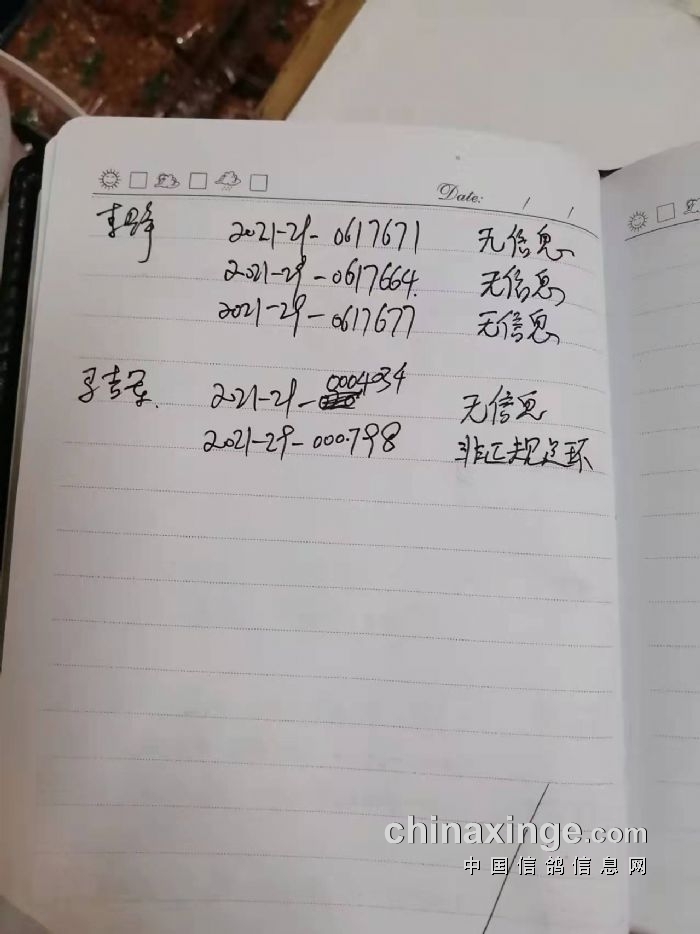 Date: / /
2021-29-0617671 无信息
2021-29-0617664. 无信息
2021-29-0617677 无信息
2021-29-0004034 无信息
2021-29-000798 非正规足环
chinaxinge.com
中国信鸽信息网